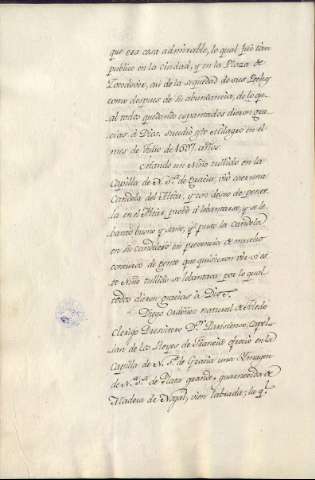 que era cosa admirable, lo qual fue tan
publico en la ciudad, y en la Plaza de
Zocodover, asi de la sequedad de sus
como despues de su abundancia, de lo qe
al todo quedando espantados dieron gra-
cias à Dios. sucedio este Milagro en el
mes de Julio de 1607 años.
Estando un Niño tullido en la
Capilla de N. Sª. de Gracia, vio caer una
Candela del Altar, y con deseo de poner-
la en el Altar probó à lebantarse, y se le-
bantó bueno y sano, y puso la candela
en su candelero en presencia de mucho
concurso de gente que quisieron ver
Niño tullido se lebantara por lo qual
todos dieron gracias à Dios.
Diego natural de Toledo
Clerigo Presvitero Dn. Capel-
lan de los Reyes de ofrecio en la
Capilla de N. Sª. de Gracia una Ymagen
de N. Sª. de Plata grande, guarnecida de
Madera de Nogal, vien labrada; lo ql.